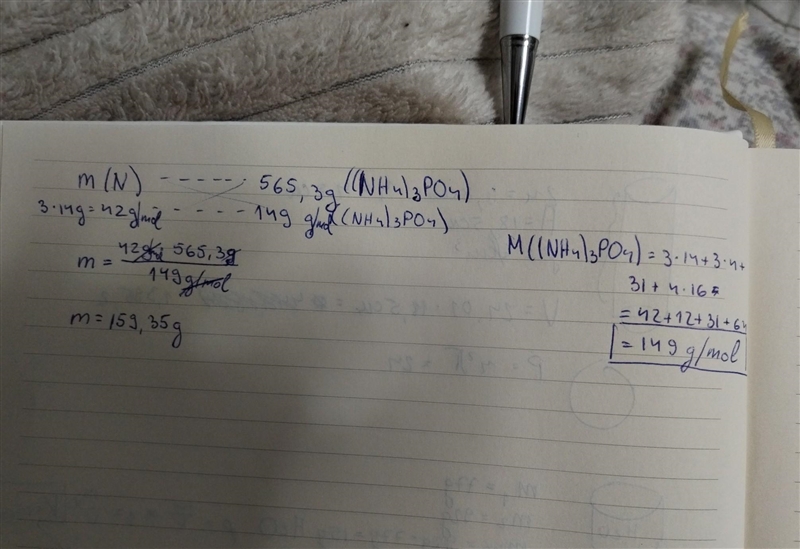 m(N) ------ 565,3g ((NH4)3PO4)
3·14g=42g/mol - - - - 149 g/mol((NH4)3PO4)
m = 42g/ 565,3g
149g/mol
m = 159,35g
M((NH4)3PO4) = 3·14+3·4+
31+4·16=
=42+12+31+64
=149 g/mol